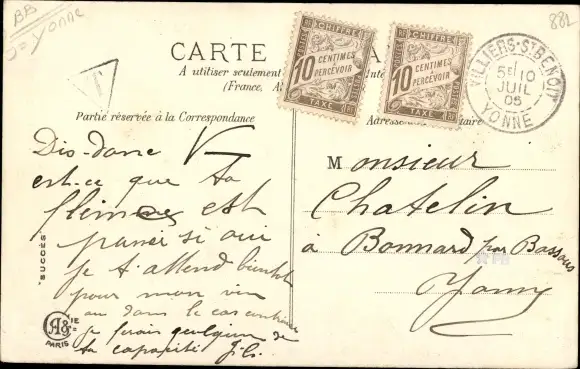 BB
Yonne
881
CARTE
A utiliser seulement
(France, A
10 CENTIMES À PERCEVOIR
CHIFFRE
TAXE
10 CENTIMES À PERCEVOIR
CHIFFRE
TAXE
VILLIERS-ST BENOIT
5E 10
JUIL
05
YONNE
T
Partie réservée à la Correspondance
Adresse
taire
Dis-donc V
est-ce que ta
flemme est
passée si oui
je t'attend bientôt
pour mon vin
ou dans le cas contraire
je ferais quelqu'un de
ta capacité
Monsieur
Chatelin
à Bonnard par Bassou
Yonne
SUCCÈS
CIE
PARIS